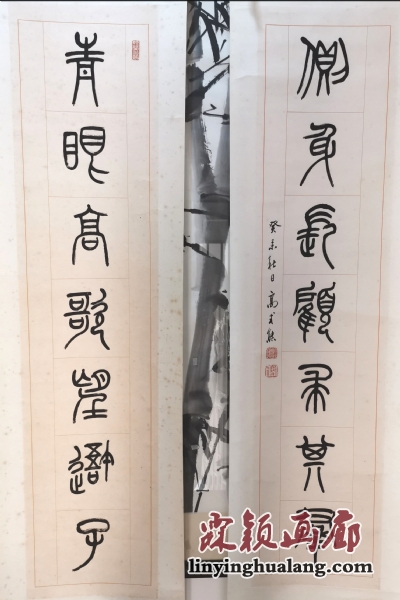 青眼高歌望吾子
側身長顧求其
癸未秋日高式熊
霖颖画廊
linyinghualang.com